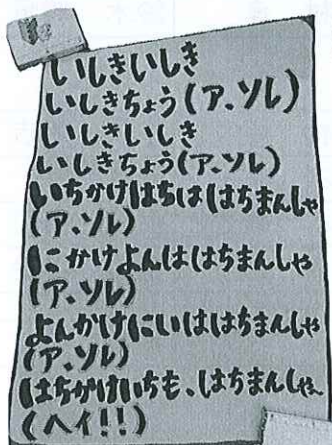 いしきいしき
いしきちょう(ア、ソレ)
いしきいしき
いしきちょう(ア、ソレ)
いちかけはちは はちまんしゃ
(ア、ソレ)
にかけよんは はちまんしゃ
(ア、ソレ)
よんかけにいは はちまんしゃ
(ア、ソレ)
はちかけいちも、はちまんしゃ〜
(ヘイ!!)